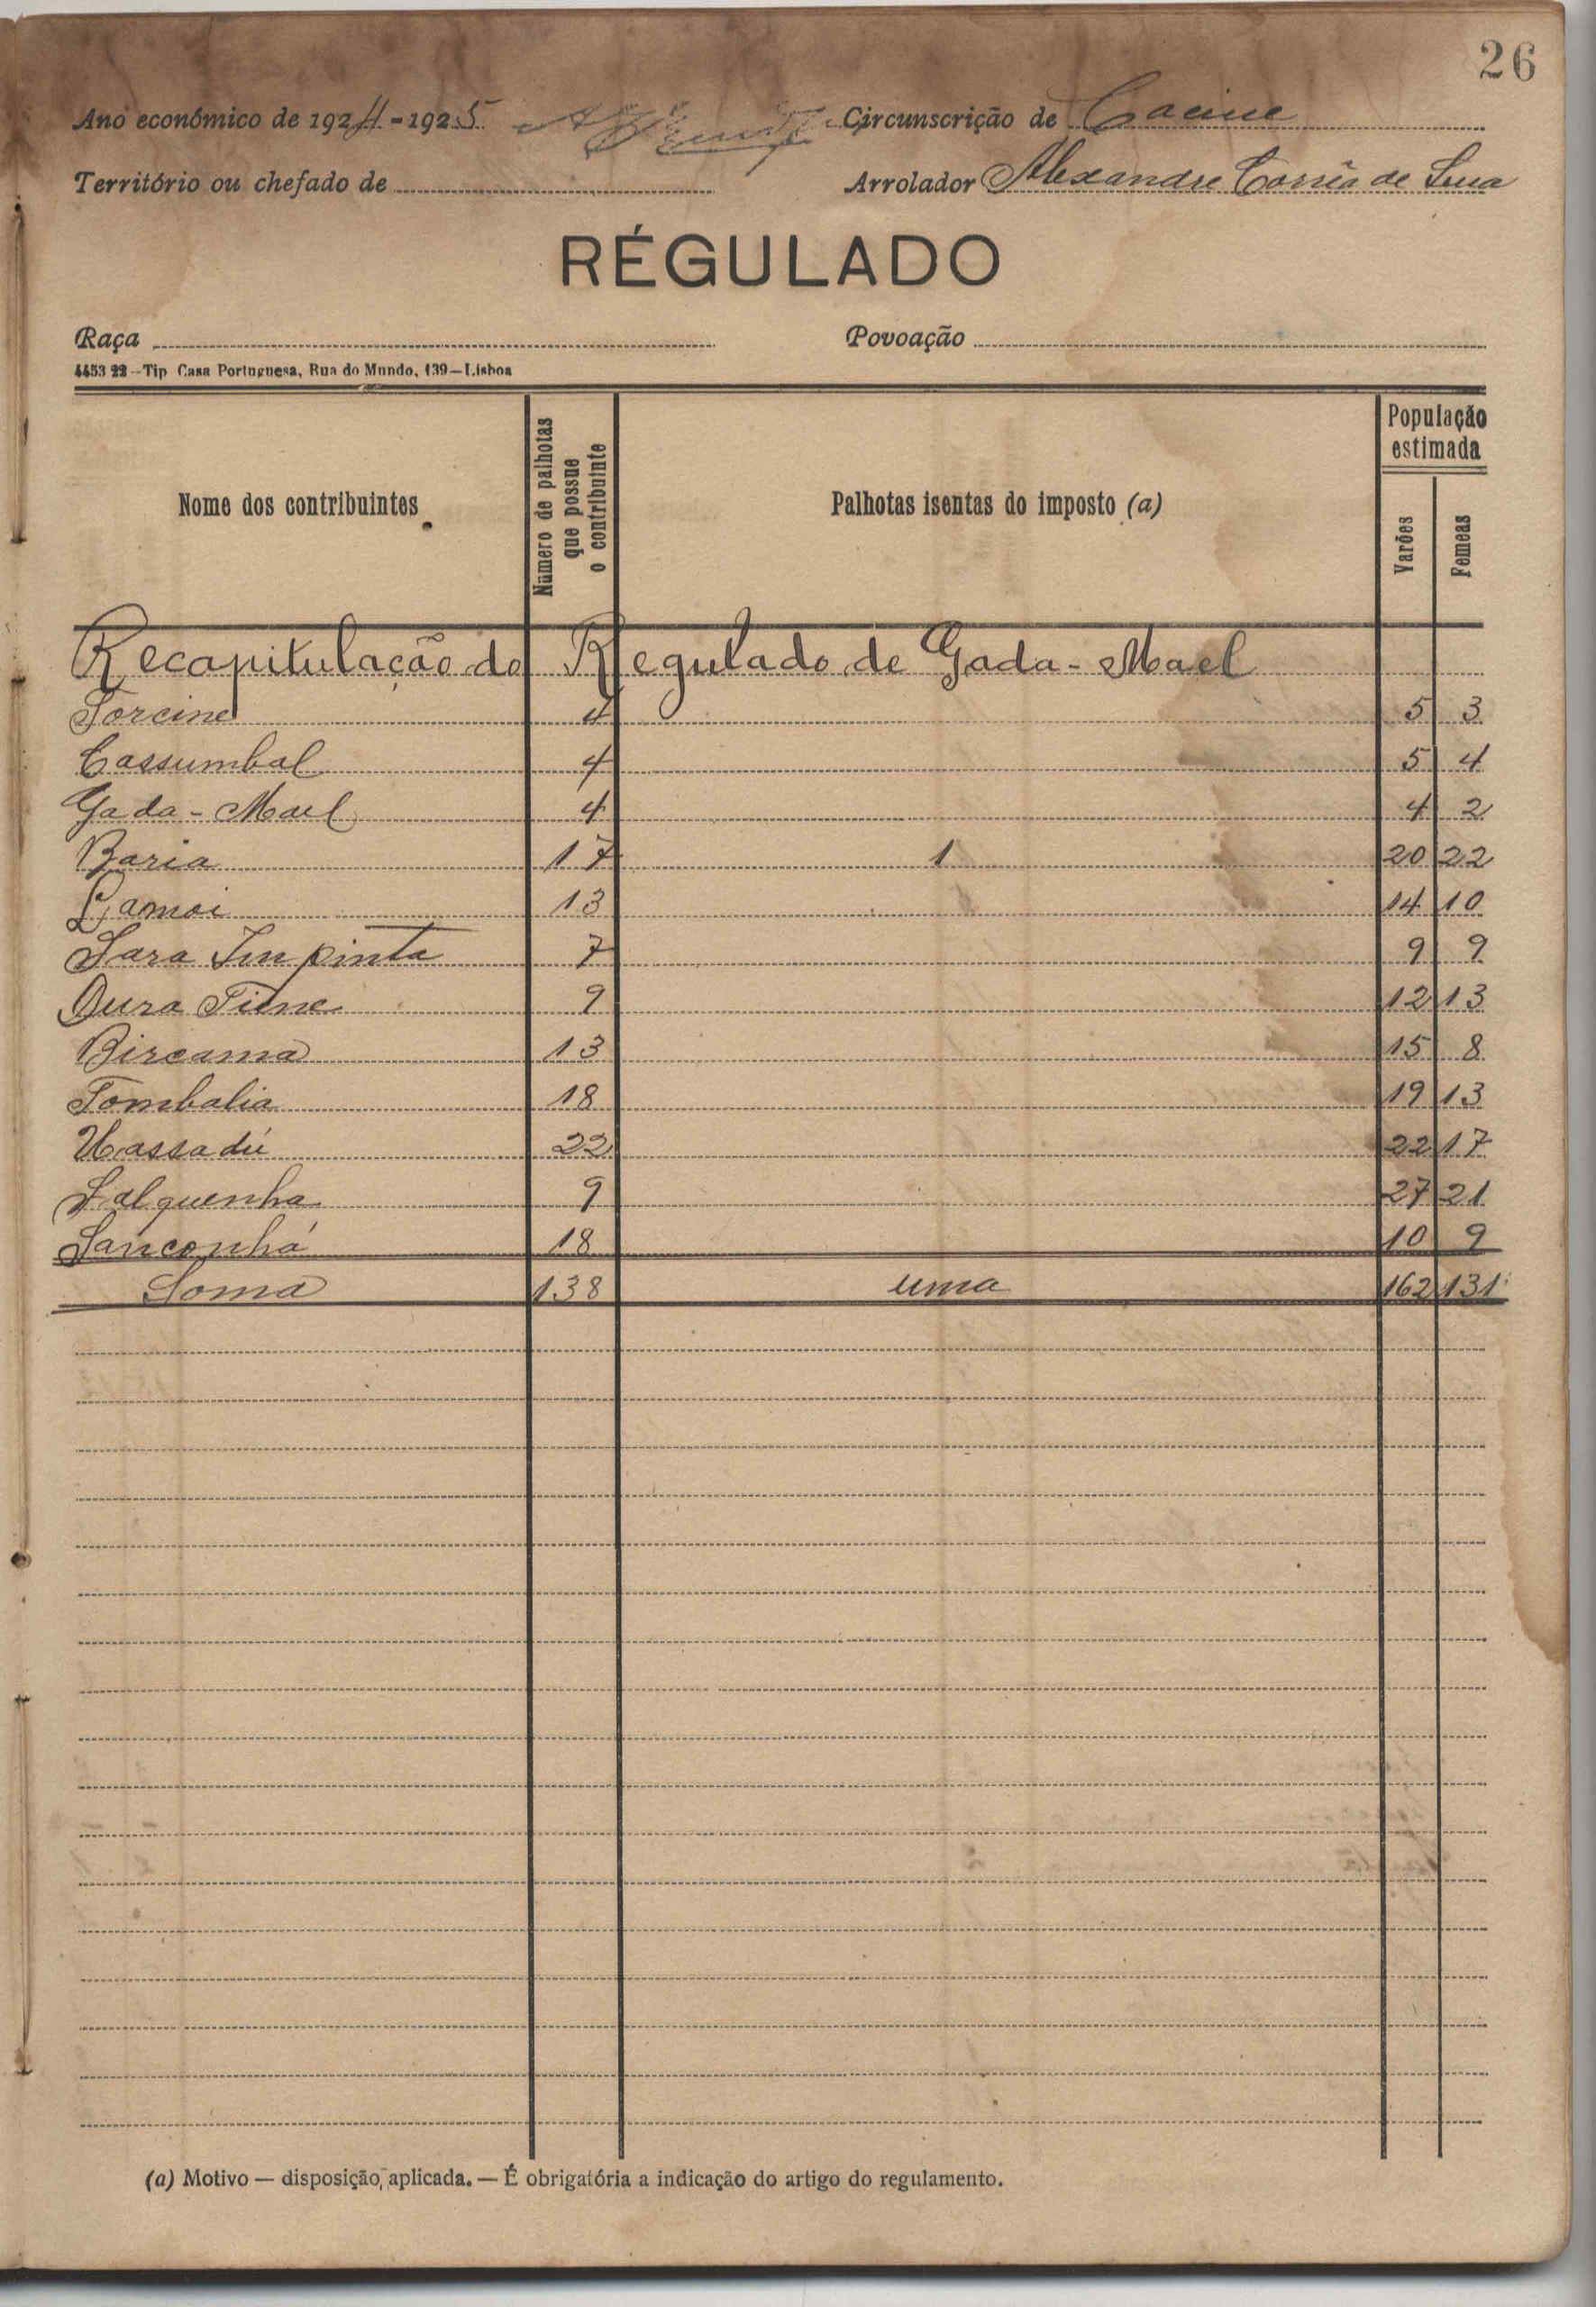 26
Ano económico de 1924-1925 Circunscrição de Cacine
Território ou chefado de Arrolador Alexandre Corrêa de
RÉGULADO
Raça Povoação
4453 22—Tip Casa Portuguesa, Rua do Mundo, 139—Lisboa
Nome dos contribuintes Número de palhotas que possue o contribuinte Palhotas isentas do imposto (a) População estimada Varões Femeas
Recapitulação do Regulado de Gada-Mael
Torcine 4 5 3
Cassumbal 4 5 4
Gada-Mael 4 4 2
Baria 17 1 20 22
Lamoi 13 14 10
Sara Impinta 7 9 9
Dura Tiene 9 12 13
Bircama 13 15 8
Tombalia 18 19 13
Uassadú 22 22 17
Salquenha 9 27 21
Sanconhá 18 10 9
Soma 138 uma 162 131
(a) Motivo — disposição, aplicada. — É obrigatória a indicação do artigo do regulamento.